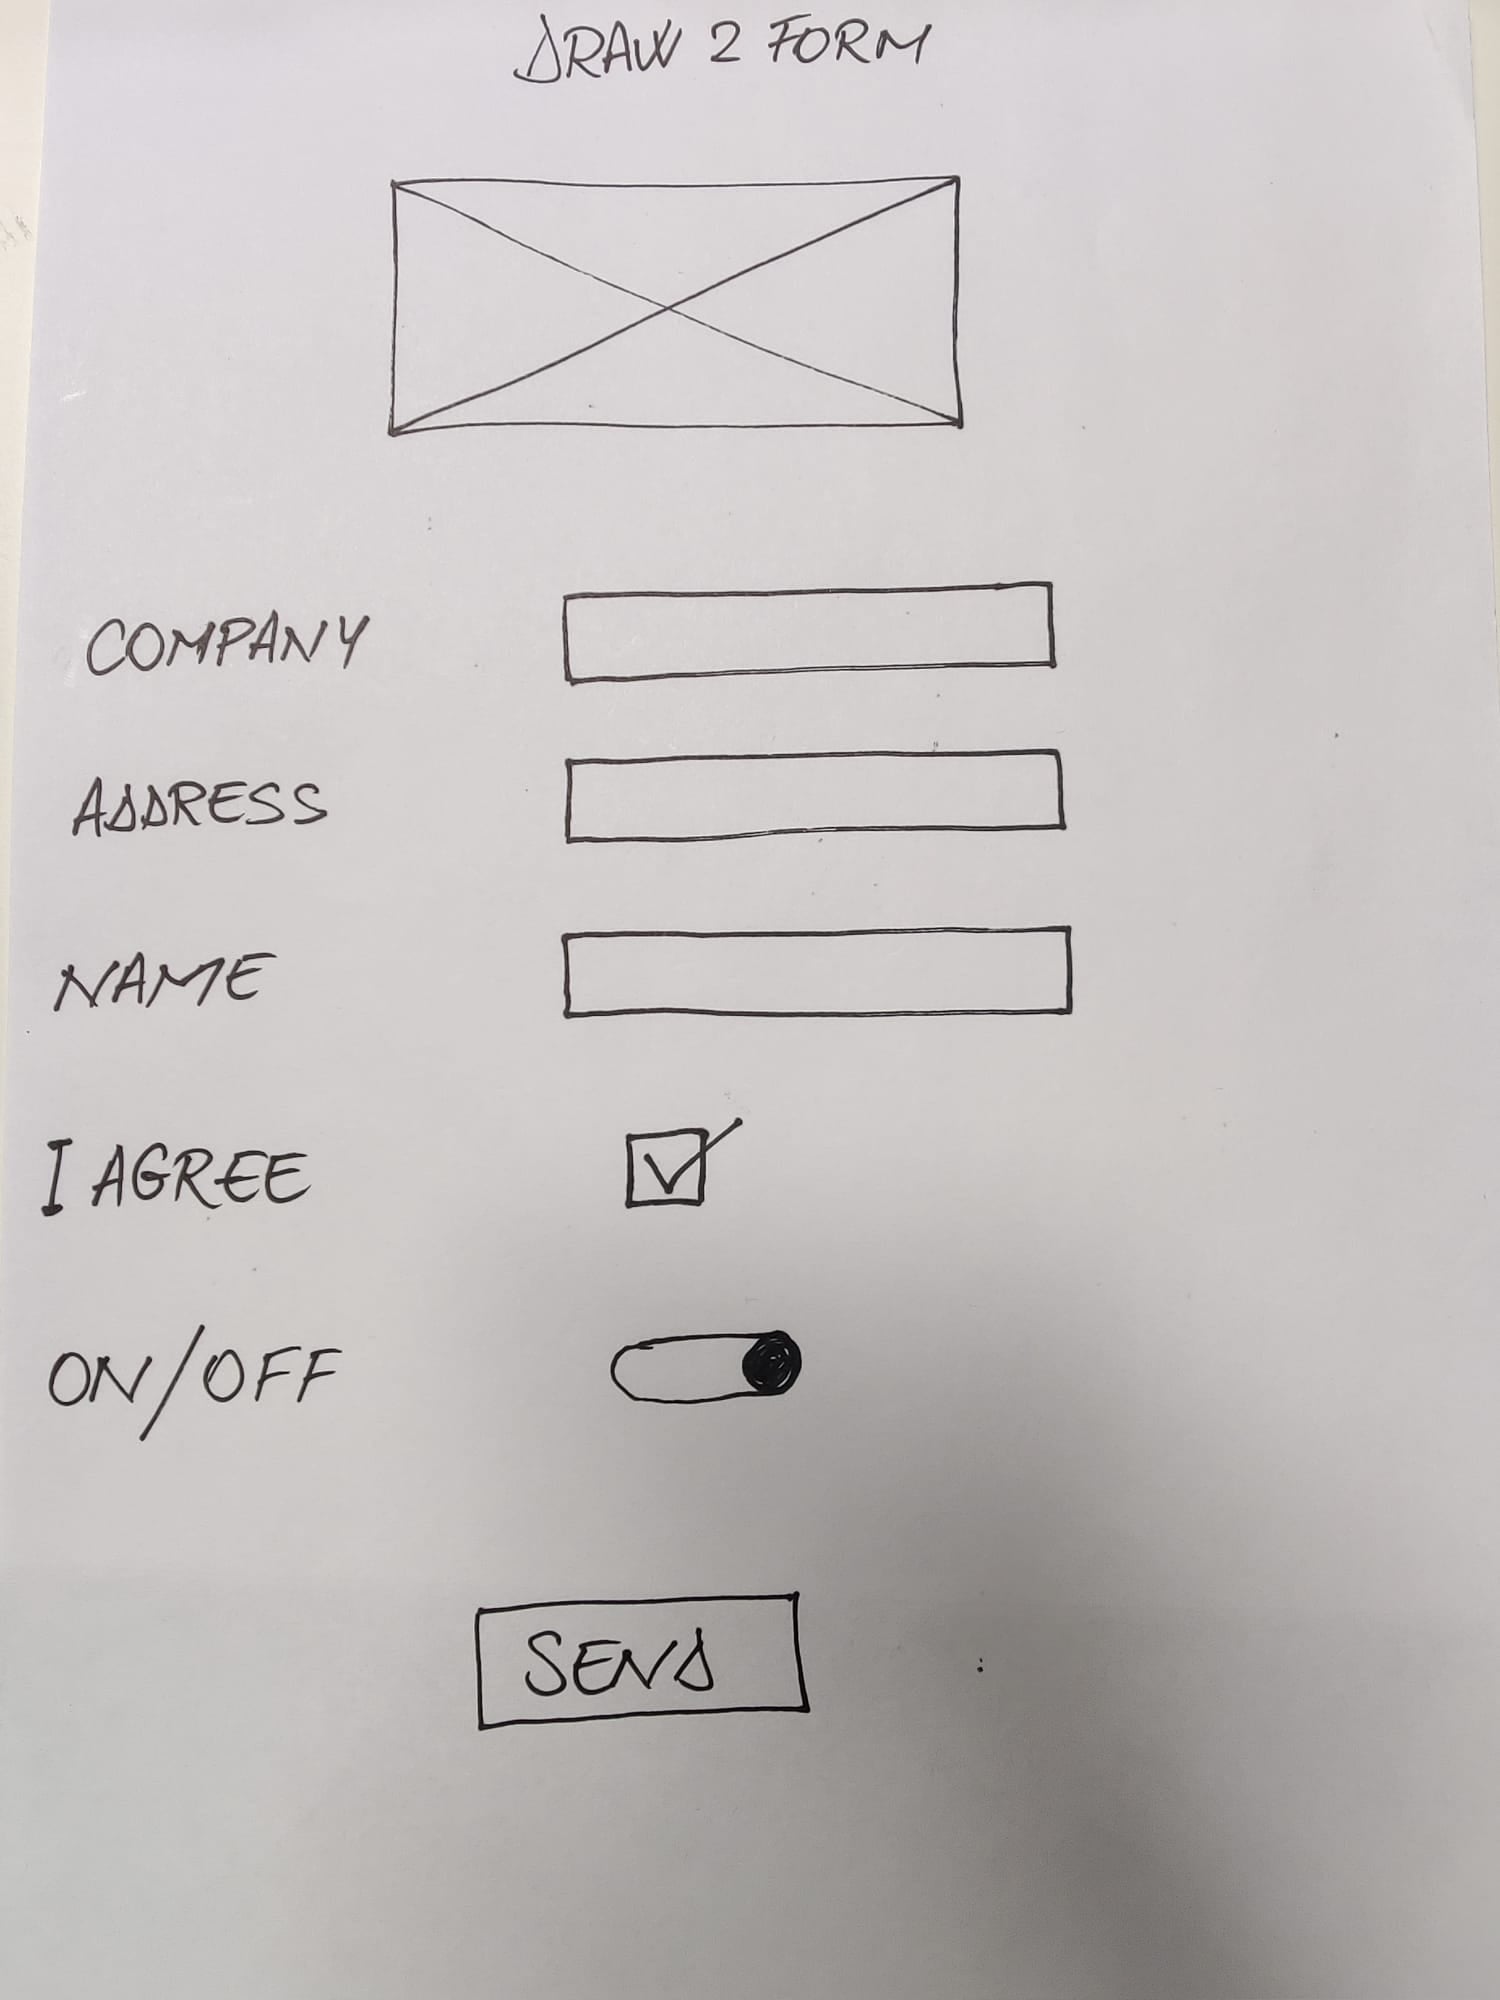 DRAW 2 FORM
COMPANY
ADDRESS
NAME
I AGREE
ON/OFF
SEND